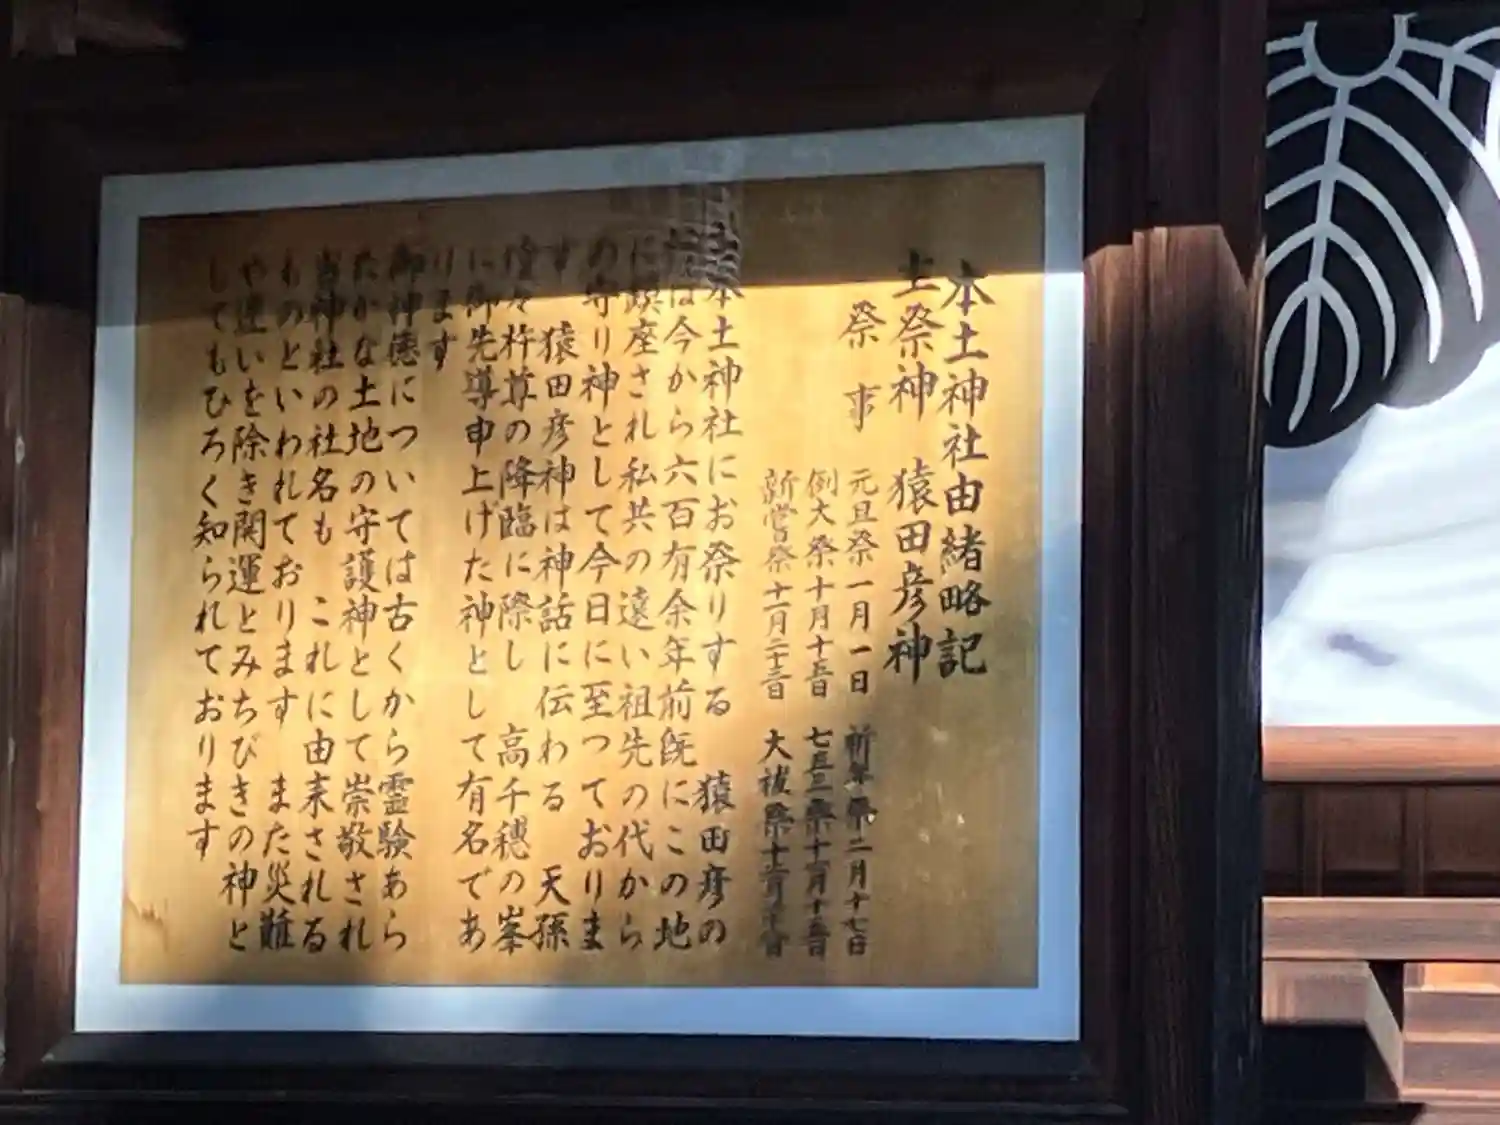 本土神社由緒略記
主祭神 猿田彦神
祭事
元旦祭 一月一日 祈年祭 二月十七日
例大祭 十月十五日 七五三祭 十一月十五日
新嘗祭 十一月二十三日 大祓祭 十二月
本土神社にお祭りする 猿田彦の
は今から六百有余年前既にこの地
に鎮座され私共の遠い祖先の代から
の守り神として今日に至つております
す 猿田彦神は神話に伝わる 天孫
瓊々杵尊の降臨に際し 高千穂の峯
に御先導申上げた神として有名であ
ります
御神徳については古くから霊験あら
たかな土地の守護神として崇敬され
当神社の社名も これに由来される
ものといわれております また災難
や迷いを除き開運とみちびきの神と
してもひろく知られております